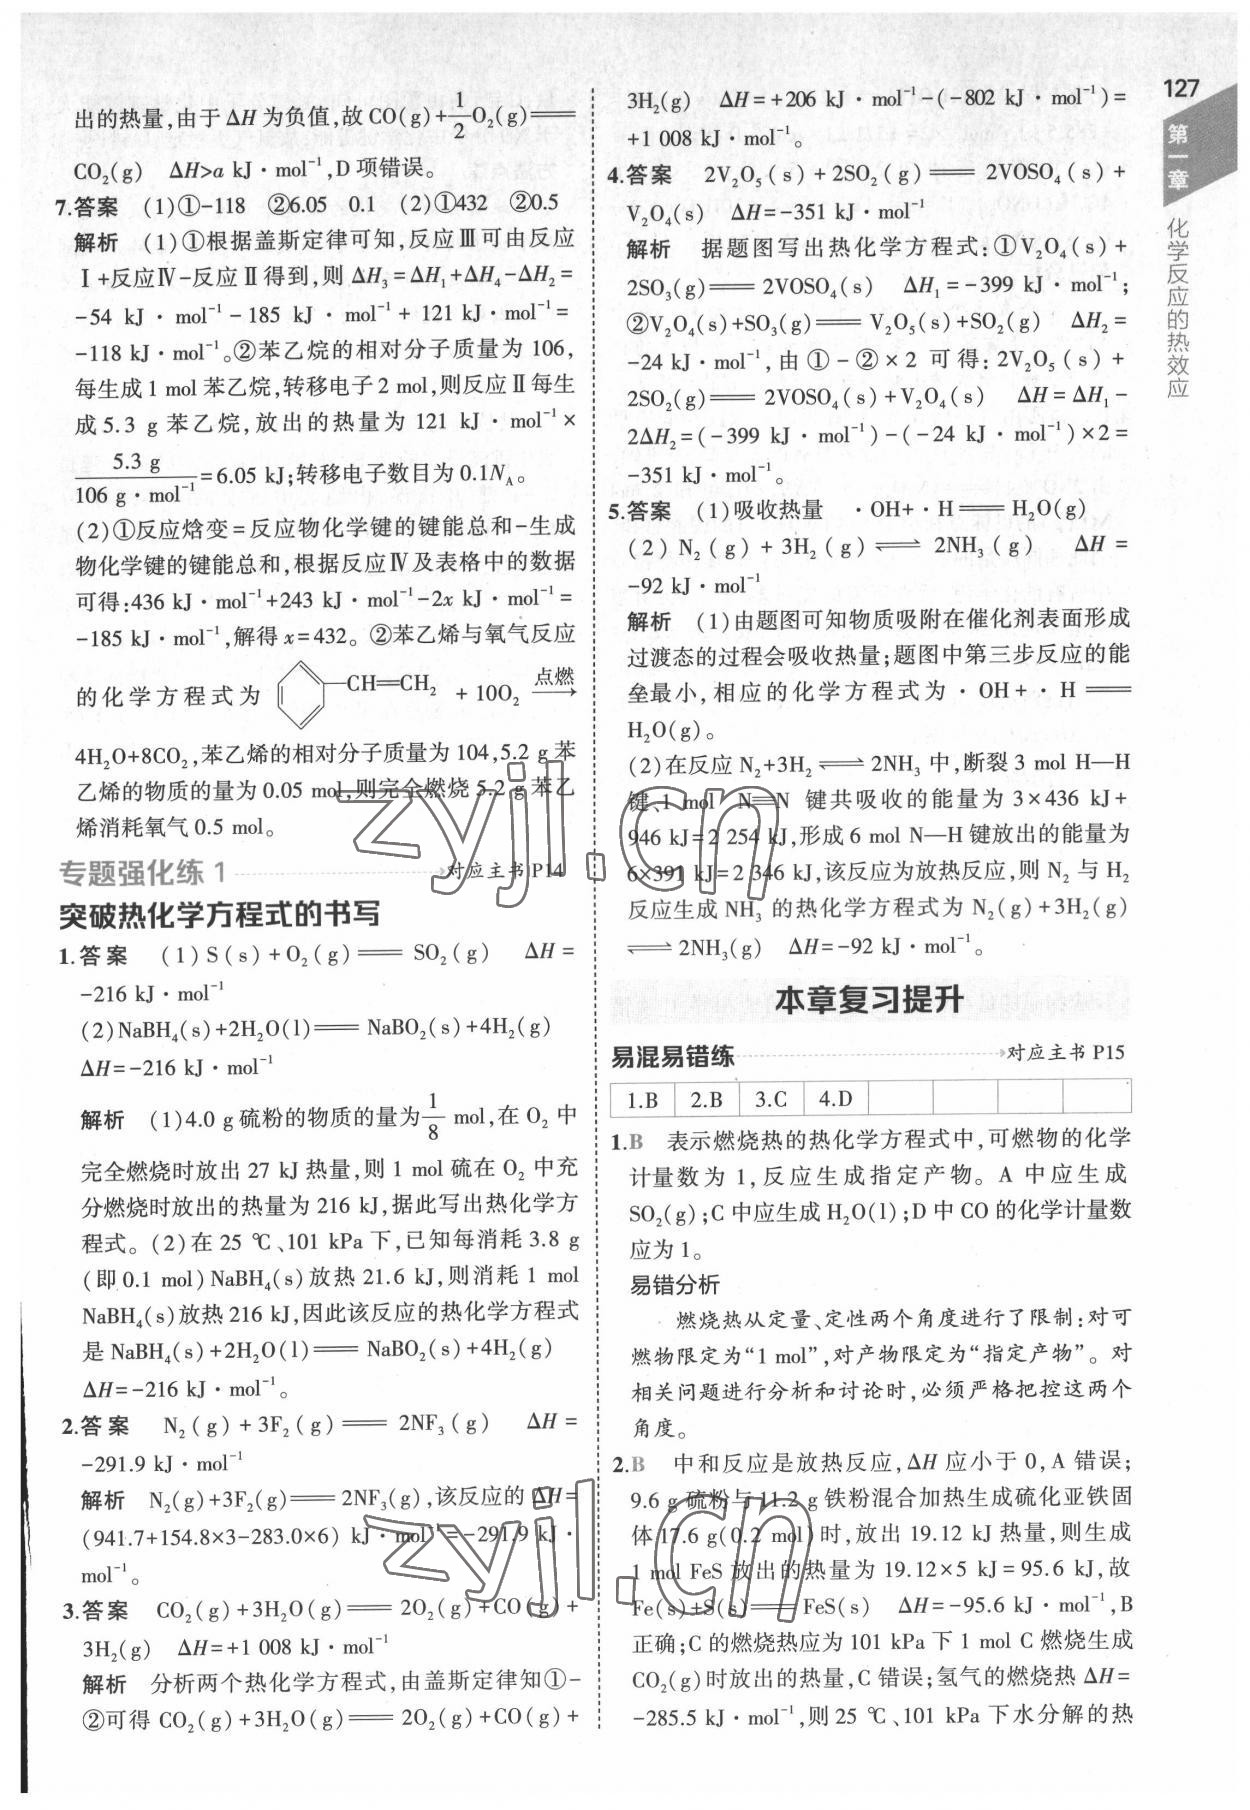 127
第一章
化学反应的热效应
出的热量,由于 ΔH 为负值,故 CO(g)+1/2O₂(g)══
CO₂(g)　ΔH>a kJ·mol⁻¹,D 项错误。
7.答案　(1)①-118　②6.05　0.1　(2)①432　②0.5
解析　(1)①根据盖斯定律可知,反应Ⅲ可由反应
Ⅰ+反应Ⅳ-反应Ⅱ得到,则 ΔH₃=ΔH₁+ΔH₄-ΔH₂=
-54 kJ·mol⁻¹-185 kJ·mol⁻¹+121 kJ·mol⁻¹=
-118 kJ·mol⁻¹。②苯乙烷的相对分子质量为 106,
每生成 1 mol 苯乙烷,转移电子 2 mol,则反应Ⅱ每生
成 5.3 g 苯乙烷,放出的热量为 121 kJ·mol⁻¹×
5.3 g/106 g·mol⁻¹=6.05 kJ;转移电子数目为 0.1N_A。
(2)①反应焓变=反应物化学键的键能总和-生成
物化学键的键能总和,根据反应Ⅳ及表格中的数据
可得:436 kJ·mol⁻¹+243 kJ·mol⁻¹-2x kJ·mol⁻¹=
-185 kJ·mol⁻¹,解得 x=432。②苯乙烯与氧气反应
的化学方程式为 CH═CH₂ + 10O₂ 点燃→
4H₂O+8CO₂,苯乙烯的相对分子质量为 104,5.2 g 苯
乙烯的物质的量为 0.05 mol,则完全燃烧 5.2 g 苯乙
烯消耗氧气 0.5 mol。
专题强化练 1　对应主书 P14
突破热化学方程式的书写
1.答案　(1)S(s)+O₂(g)══SO₂(g)　ΔH=
-216 kJ·mol⁻¹
(2)NaBH₄(s)+2H₂O(l)══NaBO₂(s)+4H₂(g)
ΔH=-216 kJ·mol⁻¹
解析　(1)4.0 g 硫粉的物质的量为 1/8 mol,在 O₂ 中
完全燃烧时放出 27 kJ 热量,则 1 mol 硫在 O₂ 中充
分燃烧时放出的热量为 216 kJ,据此写出热化学方
程式。(2)在 25 ℃、101 kPa 下,已知每消耗 3.8 g
(即 0.1 mol)NaBH₄(s)放热 21.6 kJ,则消耗 1 mol
NaBH₄(s)放热 216 kJ,因此该反应的热化学方程式
是 NaBH₄(s)+2H₂O(l)══NaBO₂(s)+4H₂(g)
ΔH=-216 kJ·mol⁻¹。
2.答案　N₂(g)+3F₂(g)══2NF₃(g)　ΔH=
-291.9 kJ·mol⁻¹
解析　N₂(g)+3F₂(g)══2NF₃(g),该反应的 ΔH=
(941.7+154.8×3-283.0×6) kJ·mol⁻¹=-291.9 kJ·
mol⁻¹。
3.答案　CO₂(g)+3H₂O(g)══2O₂(g)+CO(g)+
3H₂(g)　ΔH=+1 008 kJ·mol⁻¹
解析　分析两个热化学方程式,由盖斯定律知①-
②可得 CO₂(g)+3H₂O(g)══2O₂(g)+CO(g)+
3H₂(g)　ΔH=+206 kJ·mol⁻¹-(-802 kJ·mol⁻¹)=
+1 008 kJ·mol⁻¹。
4.答案　2V₂O₅(s)+2SO₂(g)══2VOSO₄(s)+
V₂O₄(s)　ΔH=-351 kJ·mol⁻¹
解析　据题图写出热化学方程式:①V₂O₄(s)+
2SO₃(g)══2VOSO₄(s)　ΔH₁=-399 kJ·mol⁻¹;
②V₂O₄(s)+SO₃(g)══V₂O₅(s)+SO₂(g)　ΔH₂=
-24 kJ·mol⁻¹,由①-②×2 可得:2V₂O₅(s)+
2SO₂(g)══2VOSO₄(s)+V₂O₄(s)　ΔH=ΔH₁-
2ΔH₂=(-399 kJ·mol⁻¹)-(-24 kJ·mol⁻¹)×2=
-351 kJ·mol⁻¹。
5.答案　(1)吸收热量　·OH+·H══H₂O(g)
(2)N₂(g)+3H₂(g)⇌2NH₃(g)　ΔH=
-92 kJ·mol⁻¹
解析　(1)由题图可知物质吸附在催化剂表面形成
过渡态的过程会吸收热量;题图中第三步反应的能
垒最小,相应的化学方程式为·OH+·H══
H₂O(g)。
(2)在反应 N₂+3H₂⇌2NH₃ 中,断裂 3 mol H—H
键、1 mol N≡N 键共吸收的能量为 3×436 kJ+
946 kJ=2 254 kJ,形成 6 mol N—H 键放出的能量为
6×391 kJ=2 346 kJ,该反应为放热反应,则 N₂ 与 H₂
反应生成 NH₃ 的热化学方程式为 N₂(g)+3H₂(g)
⇌2NH₃(g)　ΔH=-92 kJ·mol⁻¹。
本章复习提升
易混易错练　对应主书 P15
1.B　2.B　3.C　4.D
1.B　表示燃烧热的热化学方程式中,可燃物的化学
计量数为 1,反应生成指定产物。A 中应生成
SO₂(g);C 中应生成 H₂O(l);D 中 CO 的化学计量数
应为 1。
易错分析
燃烧热从定量、定性两个角度进行了限制:对可
燃物限定为“1 mol”,对产物限定为“指定产物”。对
相关问题进行分析和讨论时,必须严格把控这两个
角度。
2.B　中和反应是放热反应,ΔH 应小于 0,A 错误;
9.6 g 硫粉与 11.2 g 铁粉混合加热生成硫化亚铁固
体 17.6 g(0.2 mol)时,放出 19.12 kJ 热量,则生成
1 mol FeS 放出的热量为 19.12×5 kJ=95.6 kJ,故
Fe(s)+S(s)══FeS(s)　ΔH=-95.6 kJ·mol⁻¹,B
正确;C 的燃烧热应为 101 kPa 下 1 mol C 燃烧生成
CO₂(g)时放出的热量,C 错误;氢气的燃烧热 ΔH=
-285.5 kJ·mol⁻¹,则 25 ℃、101 kPa 下水分解的热
zyjl.cn
zyjl.cn